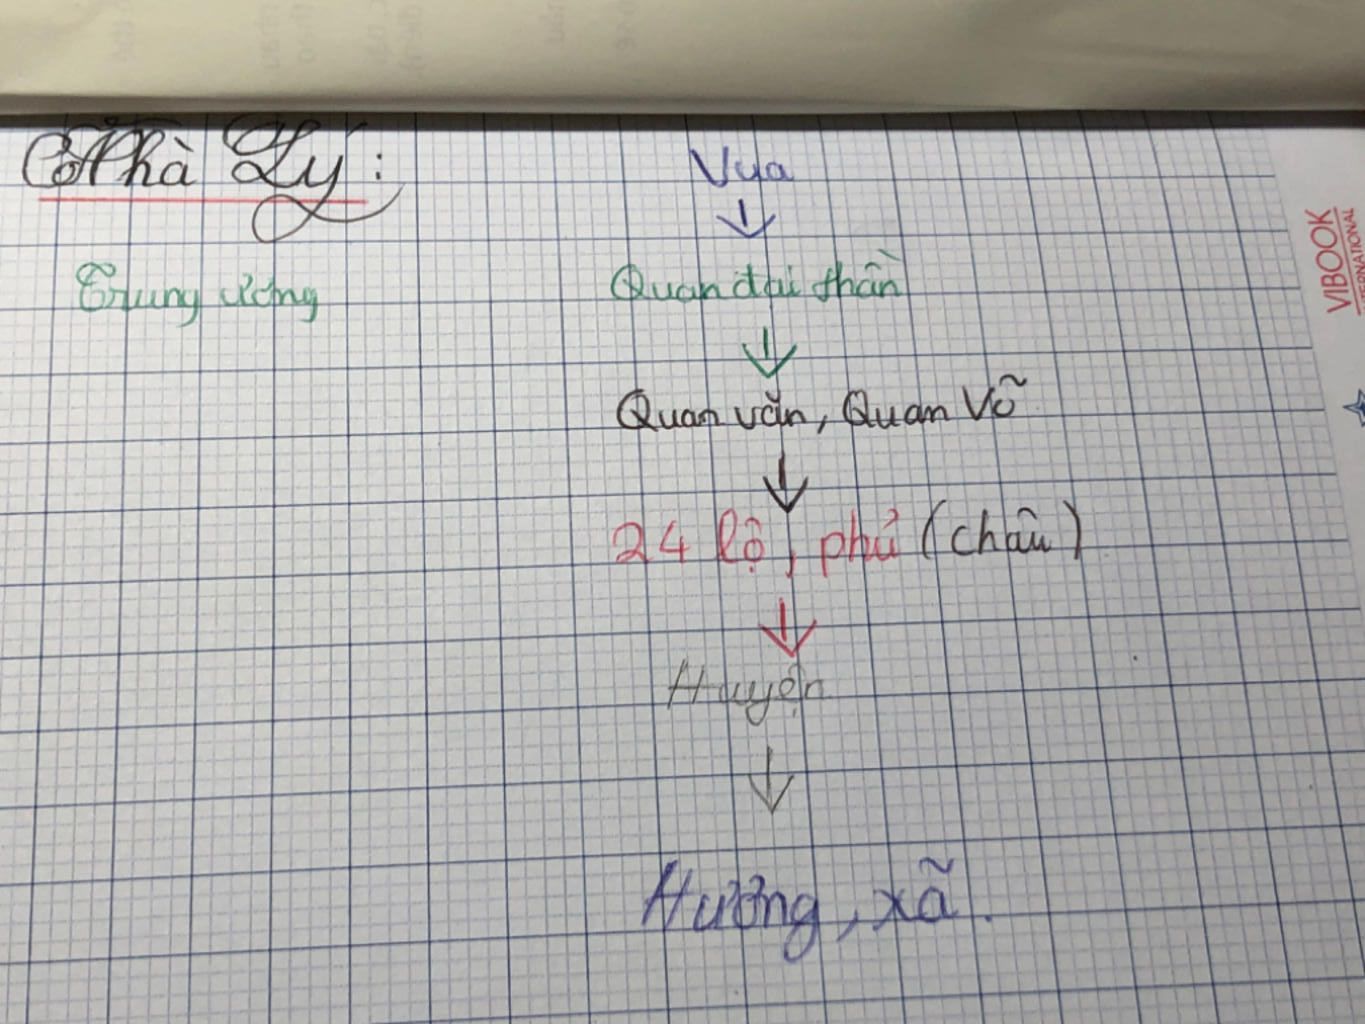 Nhà Lý :
Vua
Trung ương
Quan đại thần
Quan văn, Quan Võ
24 lộ, phủ (châu)
Huyện
Hương, xã.
VIBOOK
INTERNATIONAL